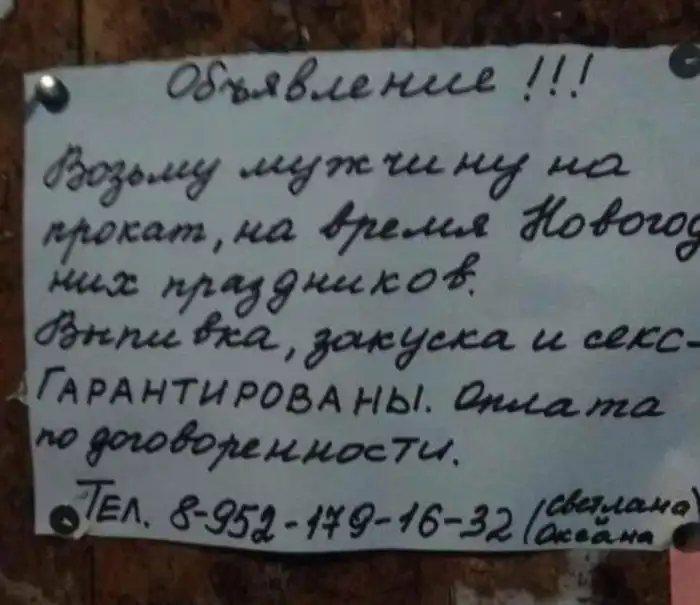 Объявление!!!
Возьму мужчину на
прокат, на время Новогод
них праздников.
Выпивка, закуска и секс-
ГАРАНТИРОВАНЫ. Оплата
по договоренности.
Тел. 8-952-179-16-32 (Светлана)
Оксана